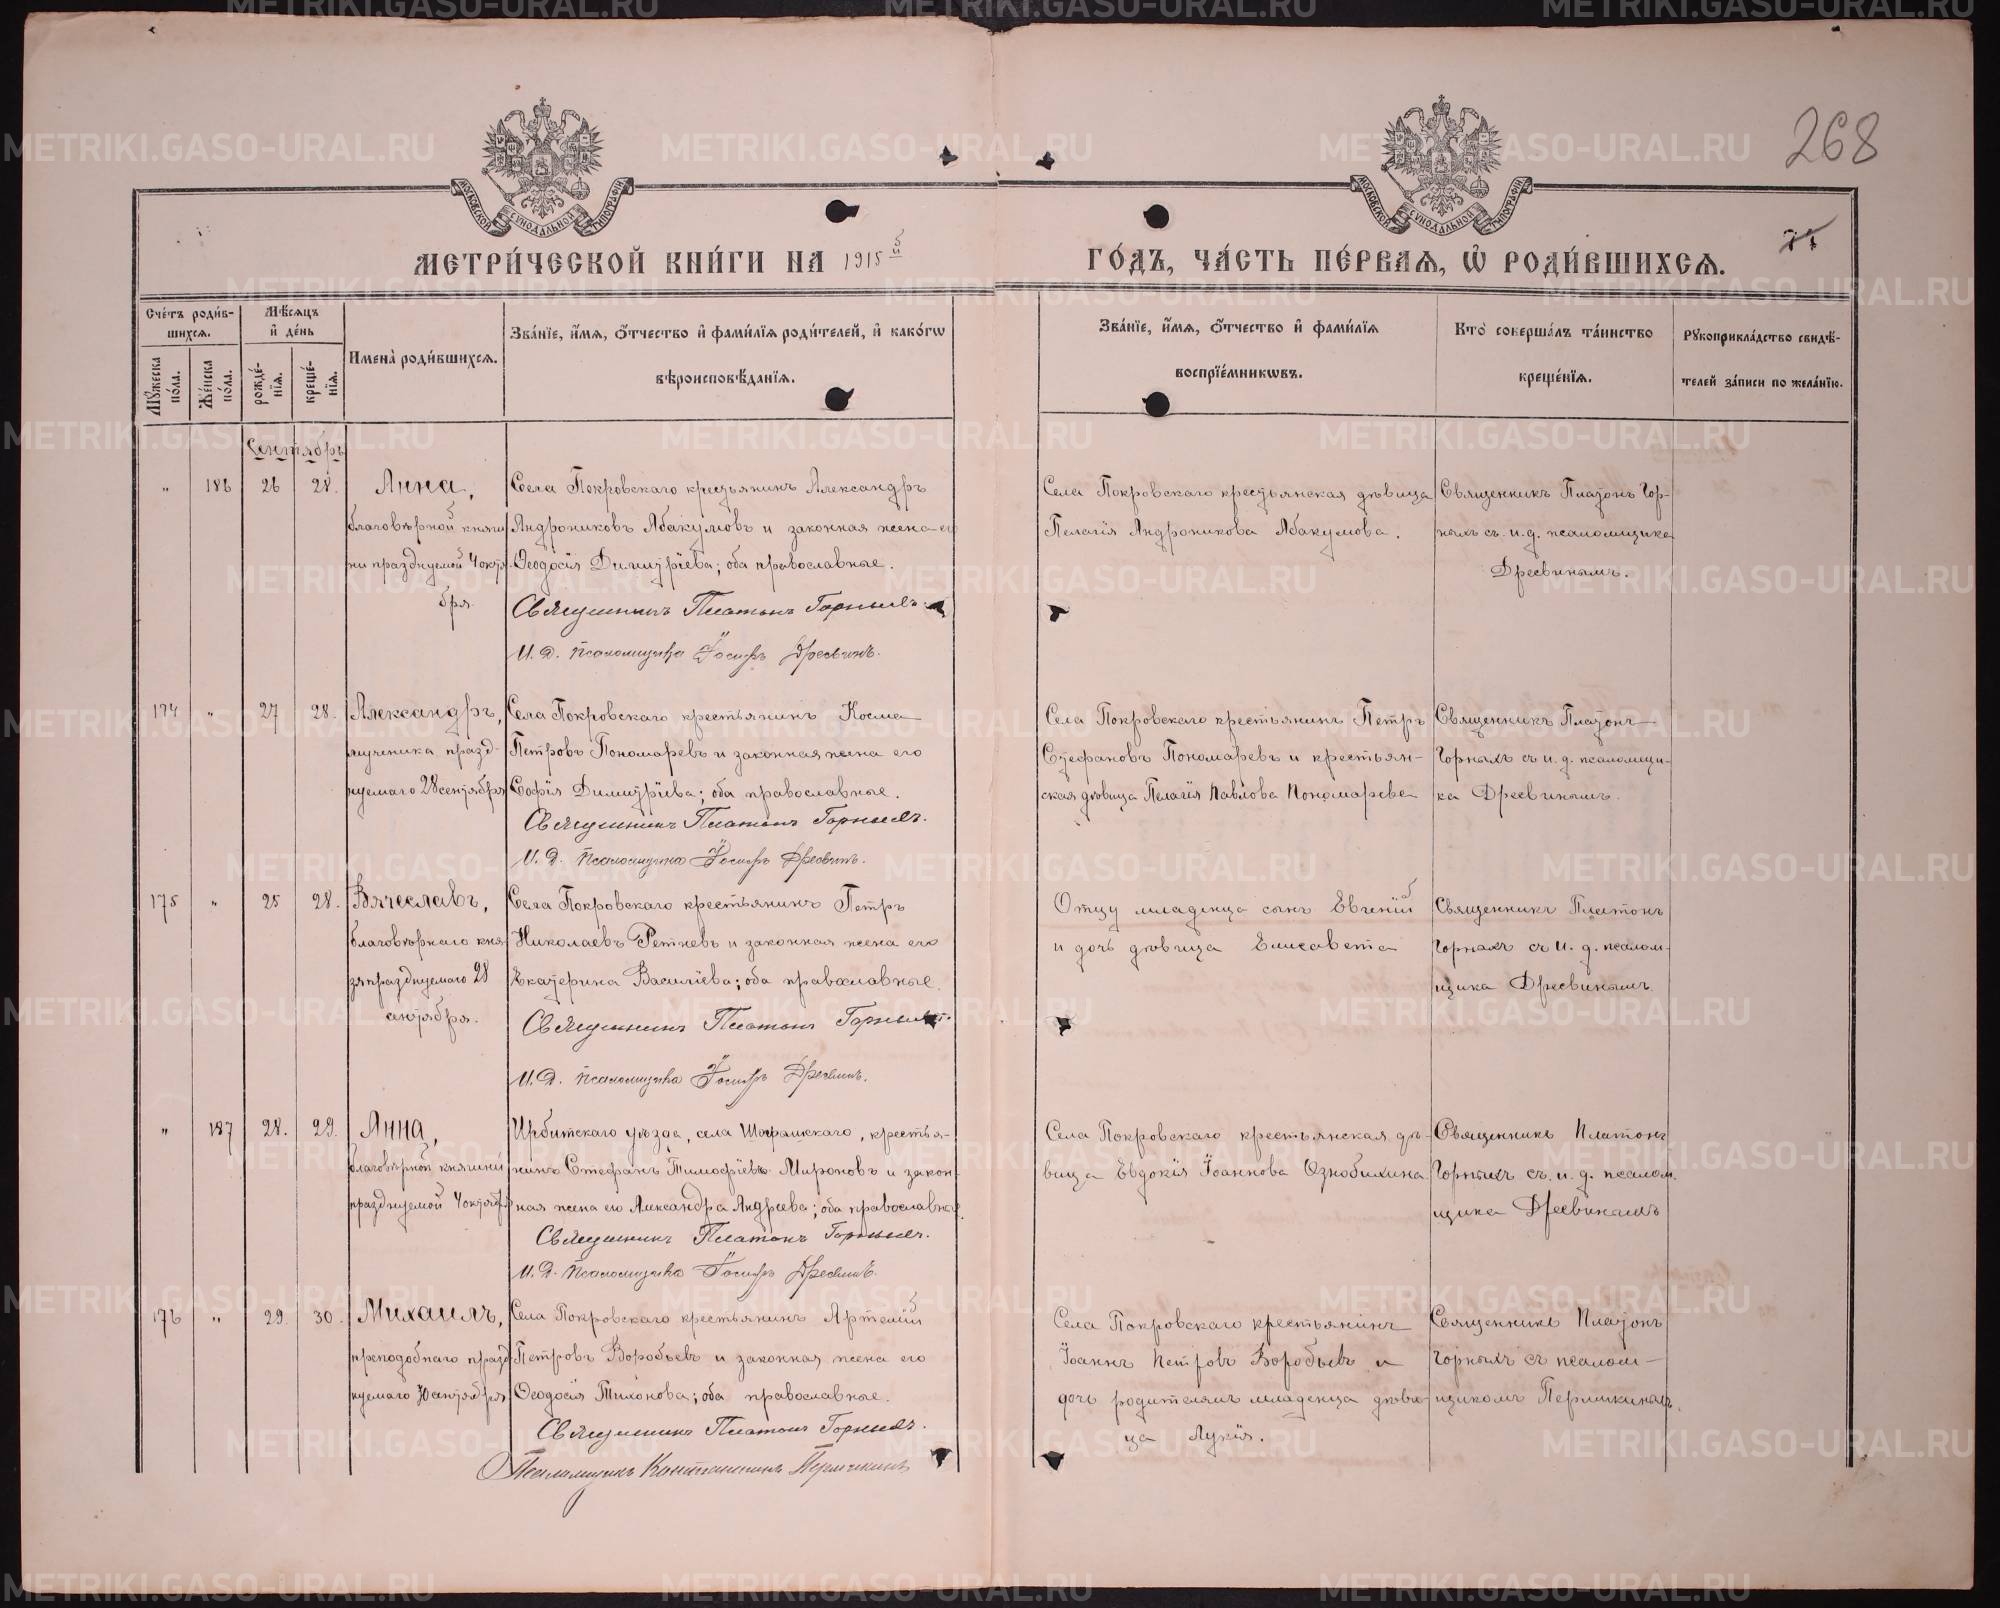 268
МОСКОВСКОЙ СѴНОДАЛЬНОЙ ТИПОГРАФІИ
МОСКОВСКОЙ СѴНОДАЛЬНОЙ ТИПОГРАФІИ
МЕТРИ́ЧЕСКОЙ КНИ́ГИ НА 1915й
ГО́ДЪ, ЧА́СТЬ ПЕ́РВАЯ, Ѡ РОДИ́ВШИХСЯ.
Сче́тъ роди́в-
шихся.
Му́жеска по́ла.
Же́нска по́ла.
Мѣ́сяцъ
и҆ де́нь
рожде́-
нїя.
креще́-
нїя.
Имена̀ роди́вшихся.
Зва́нїе, и҆́мя, ѻ҆́тчество и҆ фами́лїя роди́телей, и҆ како́гѡ
вѣроисповѣ́данїя.
Зва́нїе, и҆́мя, ѻ҆́тчество и҆ фами́лїя
воспрїе́мникѡвъ.
Кто̀ соверша́лъ та́инство
креще́нїя.
Рꙋкоприкла́дство свидѣ́-
телей за́писи по жела́нїю.
Сентябрь
" 186 26 28.
Анна,
благовѣрной княги
ни празднуемой 4 октя
бря.
Села Покровскаго крестьянинъ Александръ
Андрониковъ Абакумовъ и законная жена его
Ѳеодосія Димитріева; оба православные.
Священникъ Платонъ Горныхъ.
И. д. псаломщика Іосифъ Дресвинъ.
Села Покровскаго крестьянская дѣвица
Пелагія Андроникова Абакумова.
Священникъ Платонъ Гор-
ныхъ съ и. д. псаломщика
Дресвинымъ.
174 " 27 28.
Александръ,
мученика празд-
нуемаго 28 сентября
Села Покровскаго крестьянинъ Косма
Петровъ Пономаревъ и законная жена его
Софія Димитріева; оба православные.
Священникъ Платонъ Горныхъ.
И. д. псаломщика Іосифъ Дресвинъ.
Села Покровскаго крестьянинъ Петръ
Стефановъ Пономаревъ и крестьян-
ская дѣвица Пелагія Павлова Пономарева
Священникъ Платонъ
Горныхъ съ и. д. псаломщи-
ка Дресвинымъ.
175 " 25 28.
Вячеславъ,
благовѣрнаго кня
зя празднуемаго 28
сентября.
Села Покровскаго крестьянинъ Петръ
Николаевъ Ретневъ и законная жена его
Екатерина Василіева; оба православные.
Священникъ Платонъ Горныхъ.
И. д. псаломщика Іосифъ Дресвинъ.
Отцу младенца сынъ Евгеній
и дочь дѣвица Елисавета
Священникъ Платонъ
Горныхъ съ и. д. псалом-
щика Дресвинымъ.
" 187 28. 29.
Анна,
благовѣрной княгини
празднуемой 4 октября
Ирбитскаго уѣзда, села Шогришскаго, крестья-
нинъ Стефанъ Тимофіевъ Мироновъ и закон-
ная жена его Александра Андреева; оба православные.
Священникъ Платонъ Горныхъ.
И. д. псаломщика Іосифъ Дресвинъ.
Села Покровскаго крестьянская дѣ-
вица Евдокія Іоаннова Ознобихина
Священникъ Платонъ
Горныхъ съ и. д. псалом-
щика Дресвинымъ
176 " 29. 30.
Михаилъ,
преподобнаго празд
нуемаго 30 сентября
Села Покровскаго крестьянинъ Артемій
Петровъ Воробьевъ и законная жена его
Ѳеодосія Тихонова; оба православные.
Священникъ Платонъ Горныхъ.
Псаломщикъ Константинъ Пермикинъ
Села Покровскаго крестьянинъ
Іоаннъ Петровъ Воробьевъ и
дочь родителямъ младенца дѣви
ца Лукія.
Священникъ Платонъ
Горныхъ съ псалом-
щикомъ Пермикинымъ.
METRIKI.GASO-URAL.RU